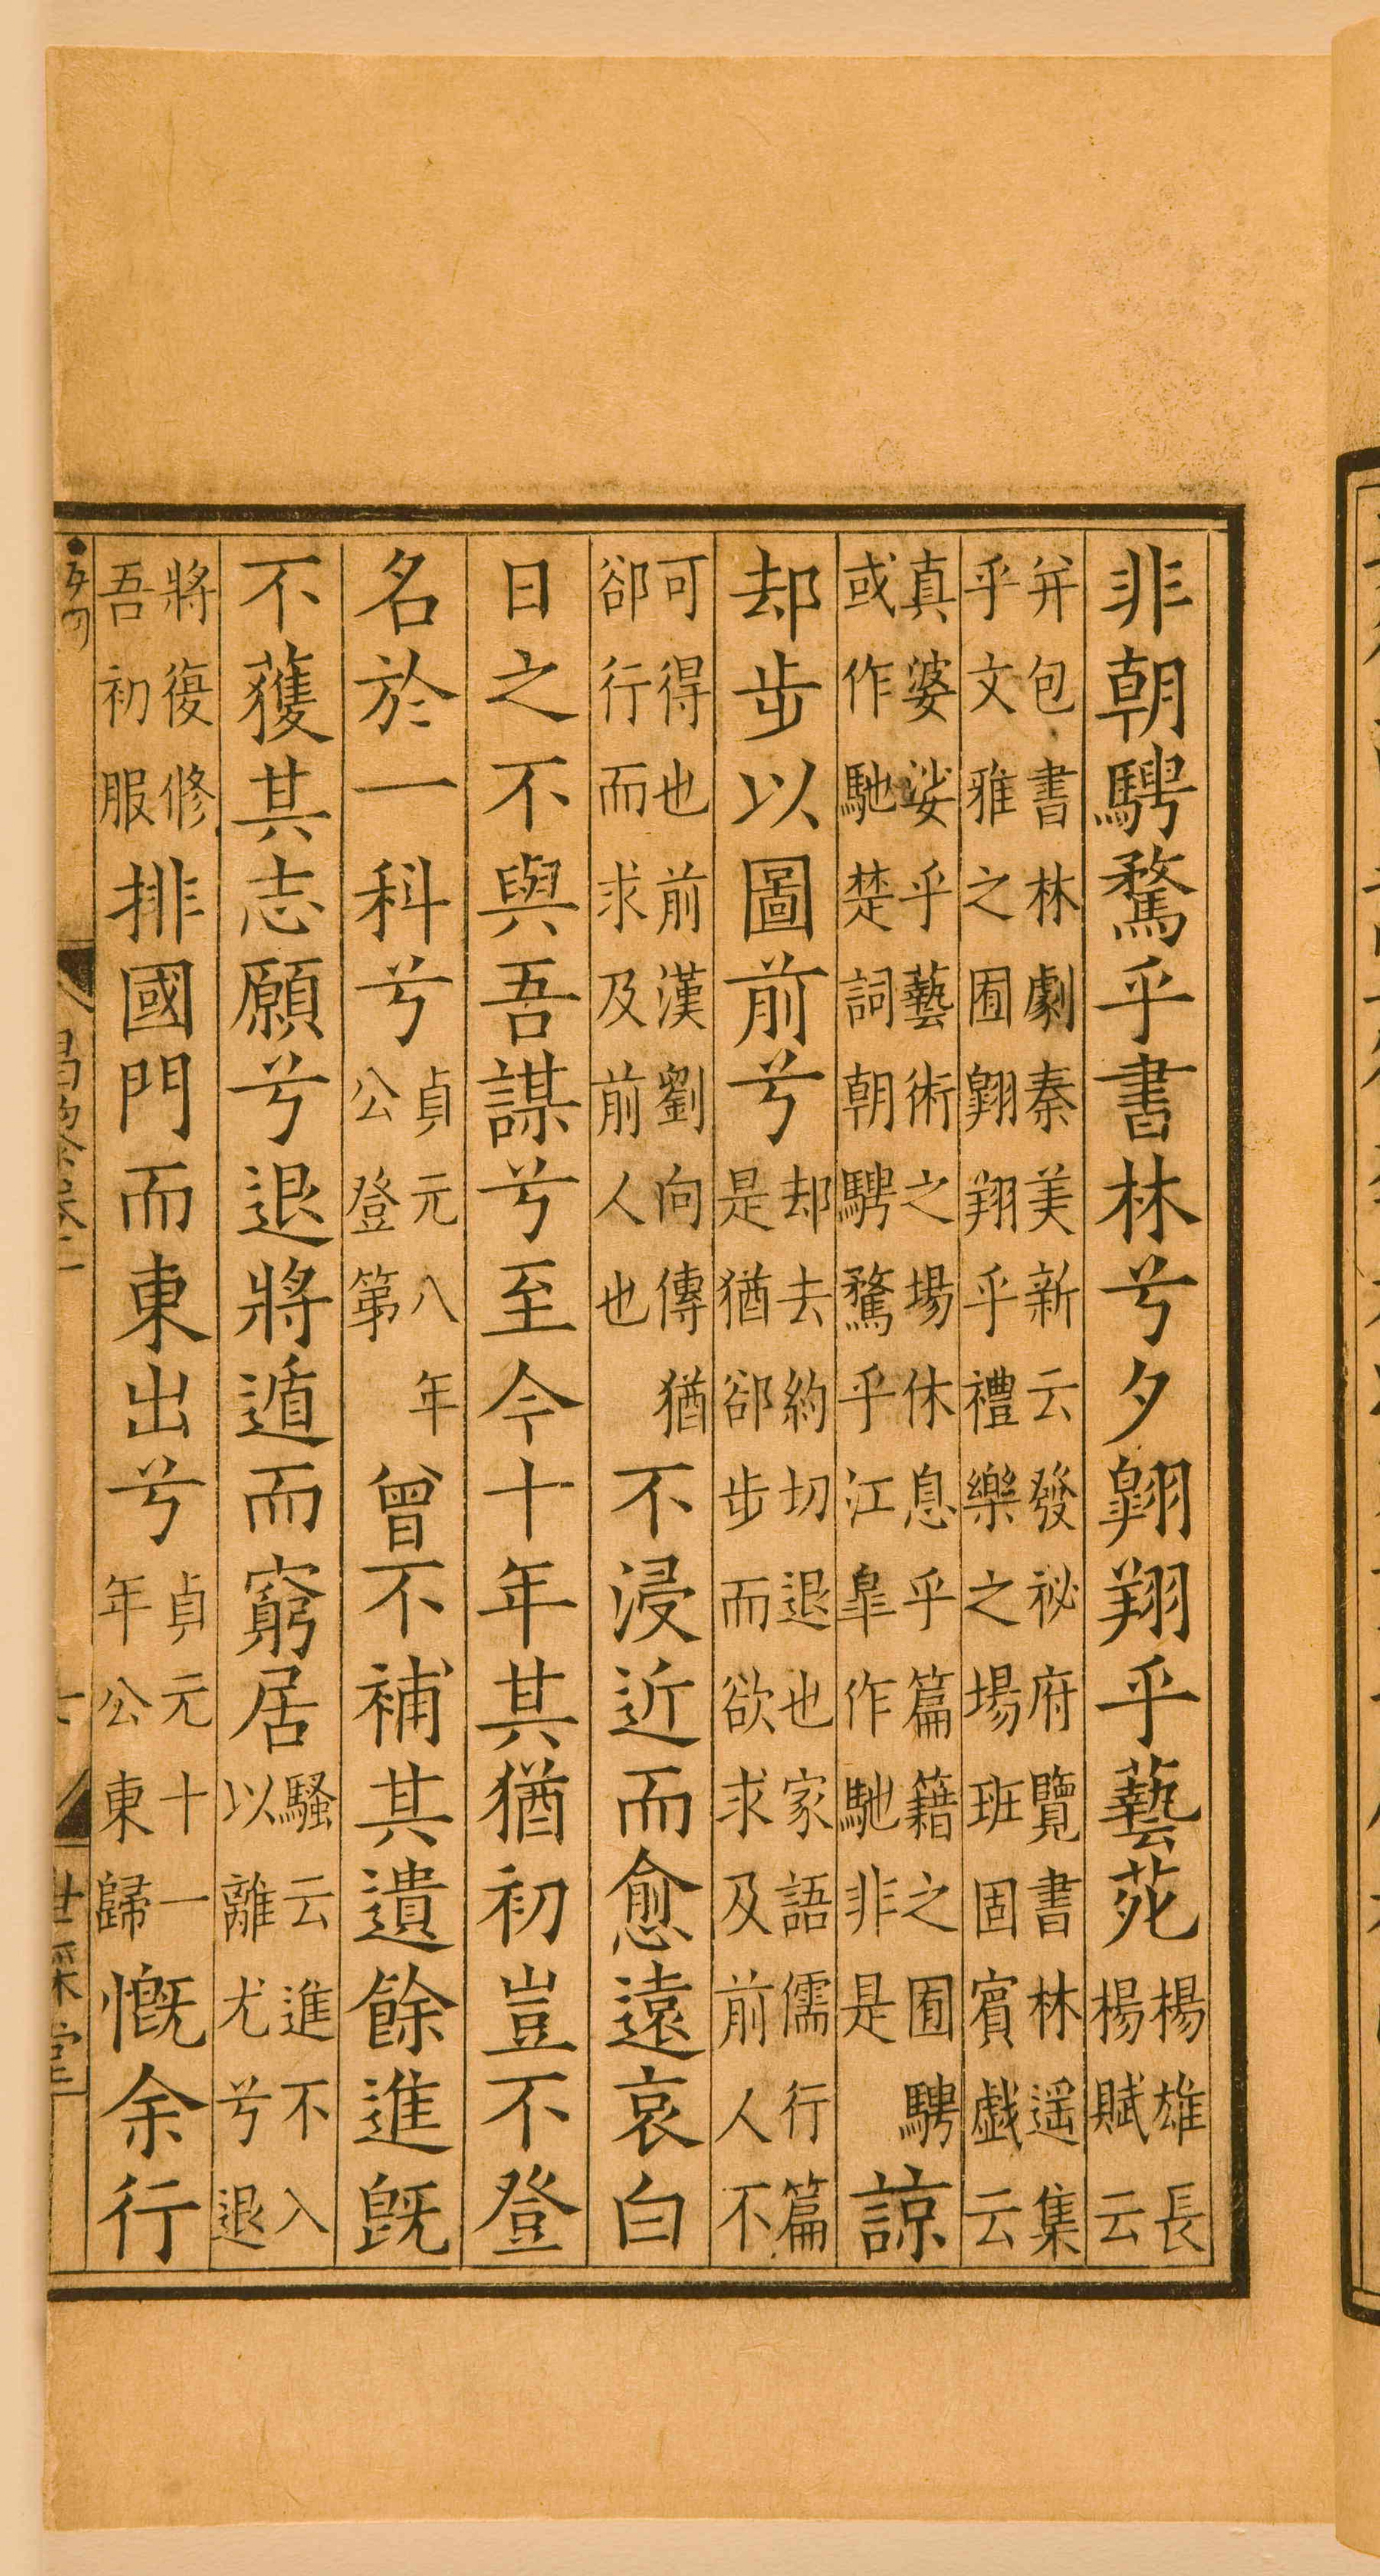 非朝騁騖乎書林兮夕翺翔乎藝苑楊雄長楊賦云
并包書林劇秦美新云發祕府覽書林遥集乎文雅之囿翺翔乎禮樂之場班固賓戯云
真婆娑乎藝術之場休息乎篇籍之囿騁或作馳楚詞朝騁騖乎江臯作馳非是諒
却步以圖前兮却去約切退也家語儒行篇是猶郤步而欲求及前人不
可得也前漢劉向傳猶郤行而求及前人也不浸近而愈遠哀白
日之不與吾謀兮至今十年其猶初豈不登
名於一科兮貞元八年公登第曾不補其遺餘進既
不獲其志願兮退將遁而窮居騷云進不入以離尤兮退
將復修吾初服排國門而東出兮貞元十一年公東歸慨余行
世綵堂